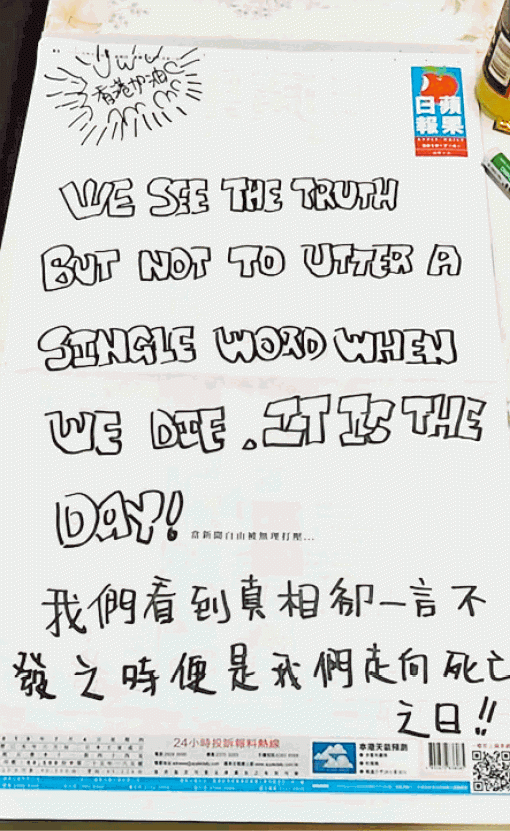 香港加油
蘋果
日報
APPLE DAILY
WE SEE THE TRUTH
BUT NOT TO UTTER A
SINGLE WORD WHEN
WE DIE. IT IS THE
DAY!
當新聞自由被無理打壓...
我們看到真相卻一言不
發之時便是我們走向死亡
之日!!
24小時投訴報料熱線
本港天氣預測